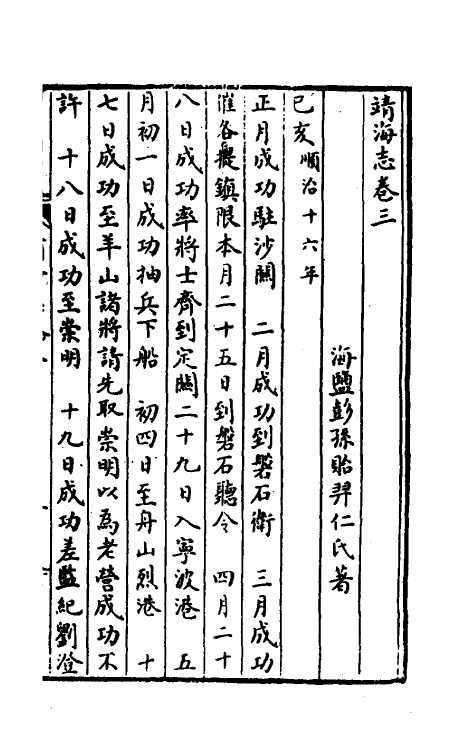 靖海志卷三
海鹽彭孫貽羿仁氏著
己亥順治十六年
正月成功駐沙關　二月成功到磐石衛　三月成功
催各提鎮限本月二十五日到磐石聽令　四月二十
八日成功率將士齊到定關二十九日入寧波港　五
月初一日成功抽兵下船　初四日至舟山烈港　十
七日成功至羊山諸將請先取崇明以為老營成功不
許　十八日成功至崇明　十九日成功差監紀劉澄